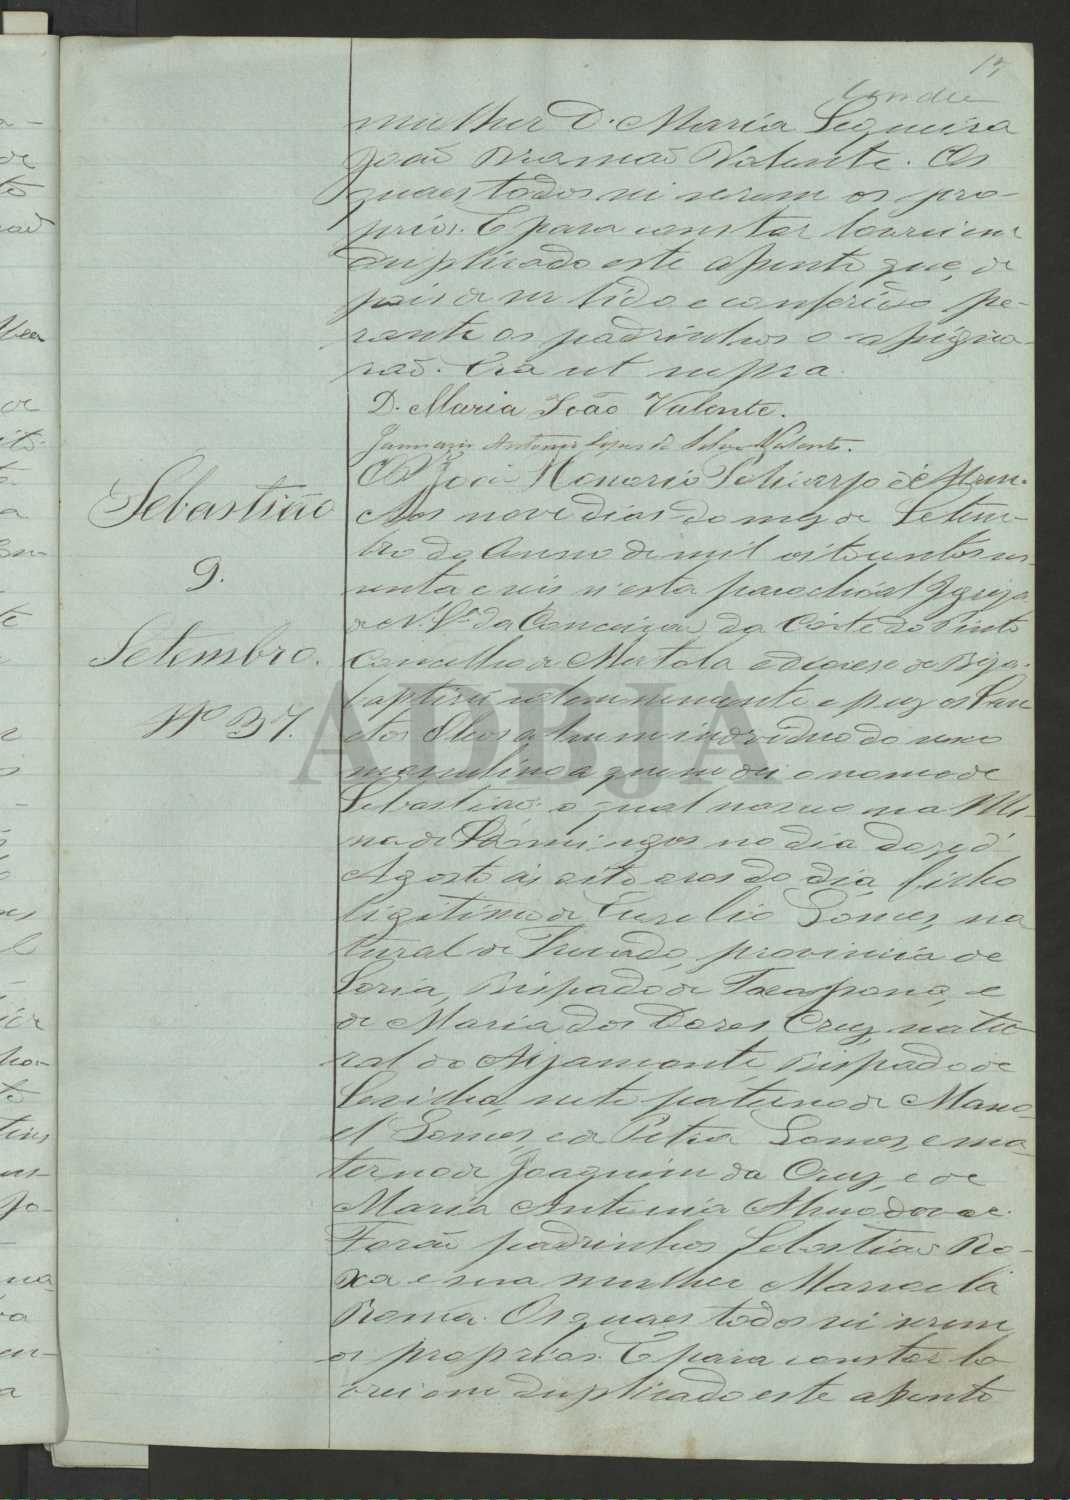 17
mulher D. Maria Sequeira
João Bramão Valente. Os
quaes todos sei serem os pro-
prios. E para constar lavrei em
duplicado este assento que, de
pois de ser lido e conferido pe-
rante os padrinhos o assigna-
rão. Era ut supra.
D. Maria João Valente.
Januario Antonio Lopes da Silva Valente.
O P. José Honorio
Sebastião
9.
Setembro.
Nº 37.
Aos nove dias do mez de Setem-
bro do Anno de mil oitocentos ses-
senta e seis n'esta parochial Igreja
de N. Srª da Conceição da Côrte do Pinto
Concelho de Mertola e diocese de Beja.
baptizei solemnemente e puz os San-
ctos Oleos a hum individuo do sexo
masculino a quem dei o nome de
Sebastião o qual nasceu na Mi-
na de S. Domingos no dia dez de
Agosto ás oito oras do dia, filho
ligitimo de Eusebio Gomes, na
tural de provincia de
Soria, Bispado de Taraçona, e
de Maria das Dores Cruz, natu-
ral de Aijamonte, Bispado de
Sevilha, neto paterno de Mano-
el Gomes, e de Petra Gomes, e ma-
terno de Joaquim da Cruz, e de
Maria Antonia
Forão padrinhos Sebastião Ro-
xa e sua mulher Manoela
Roma. Os quaes todos sei serem
os proprios. E para constar la-
vrei em duplicado este assento
ADBJA